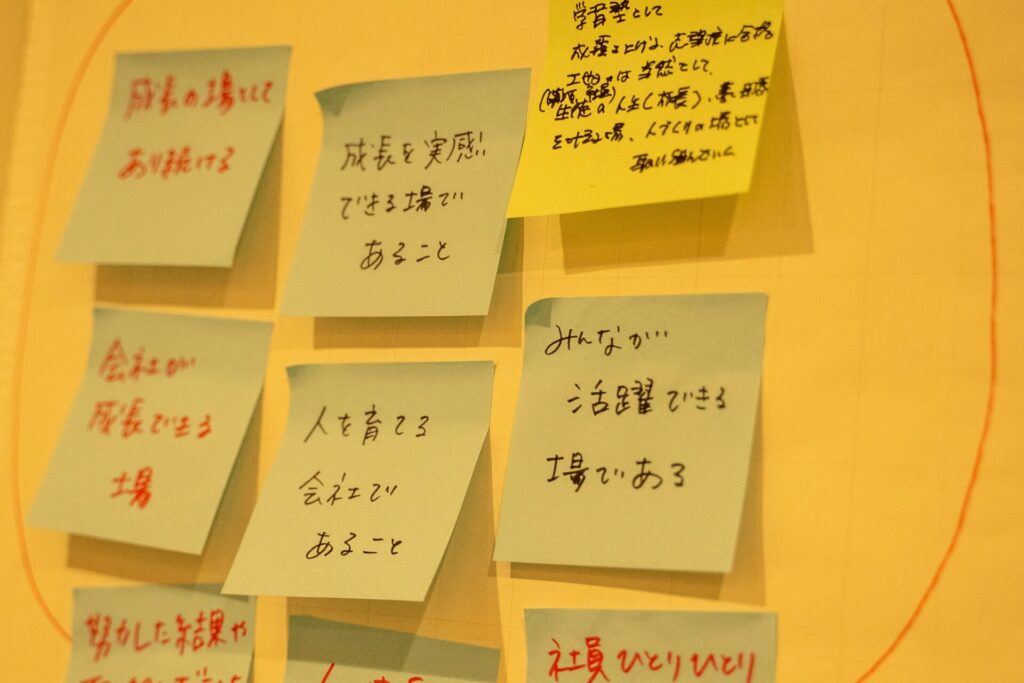 成長の場として
あり続ける
成長を実感
できる場で
あること
学習塾として
成績を上げる、志望校に合格
は当然として、
生徒の人生(成長)、
場、人づくりの場として
取り組んでいく
会社が
成長できる
場
人を育てる
会社で
あること
みんなが
活躍できる
場である
努力した結果や
社員ひとりひとり